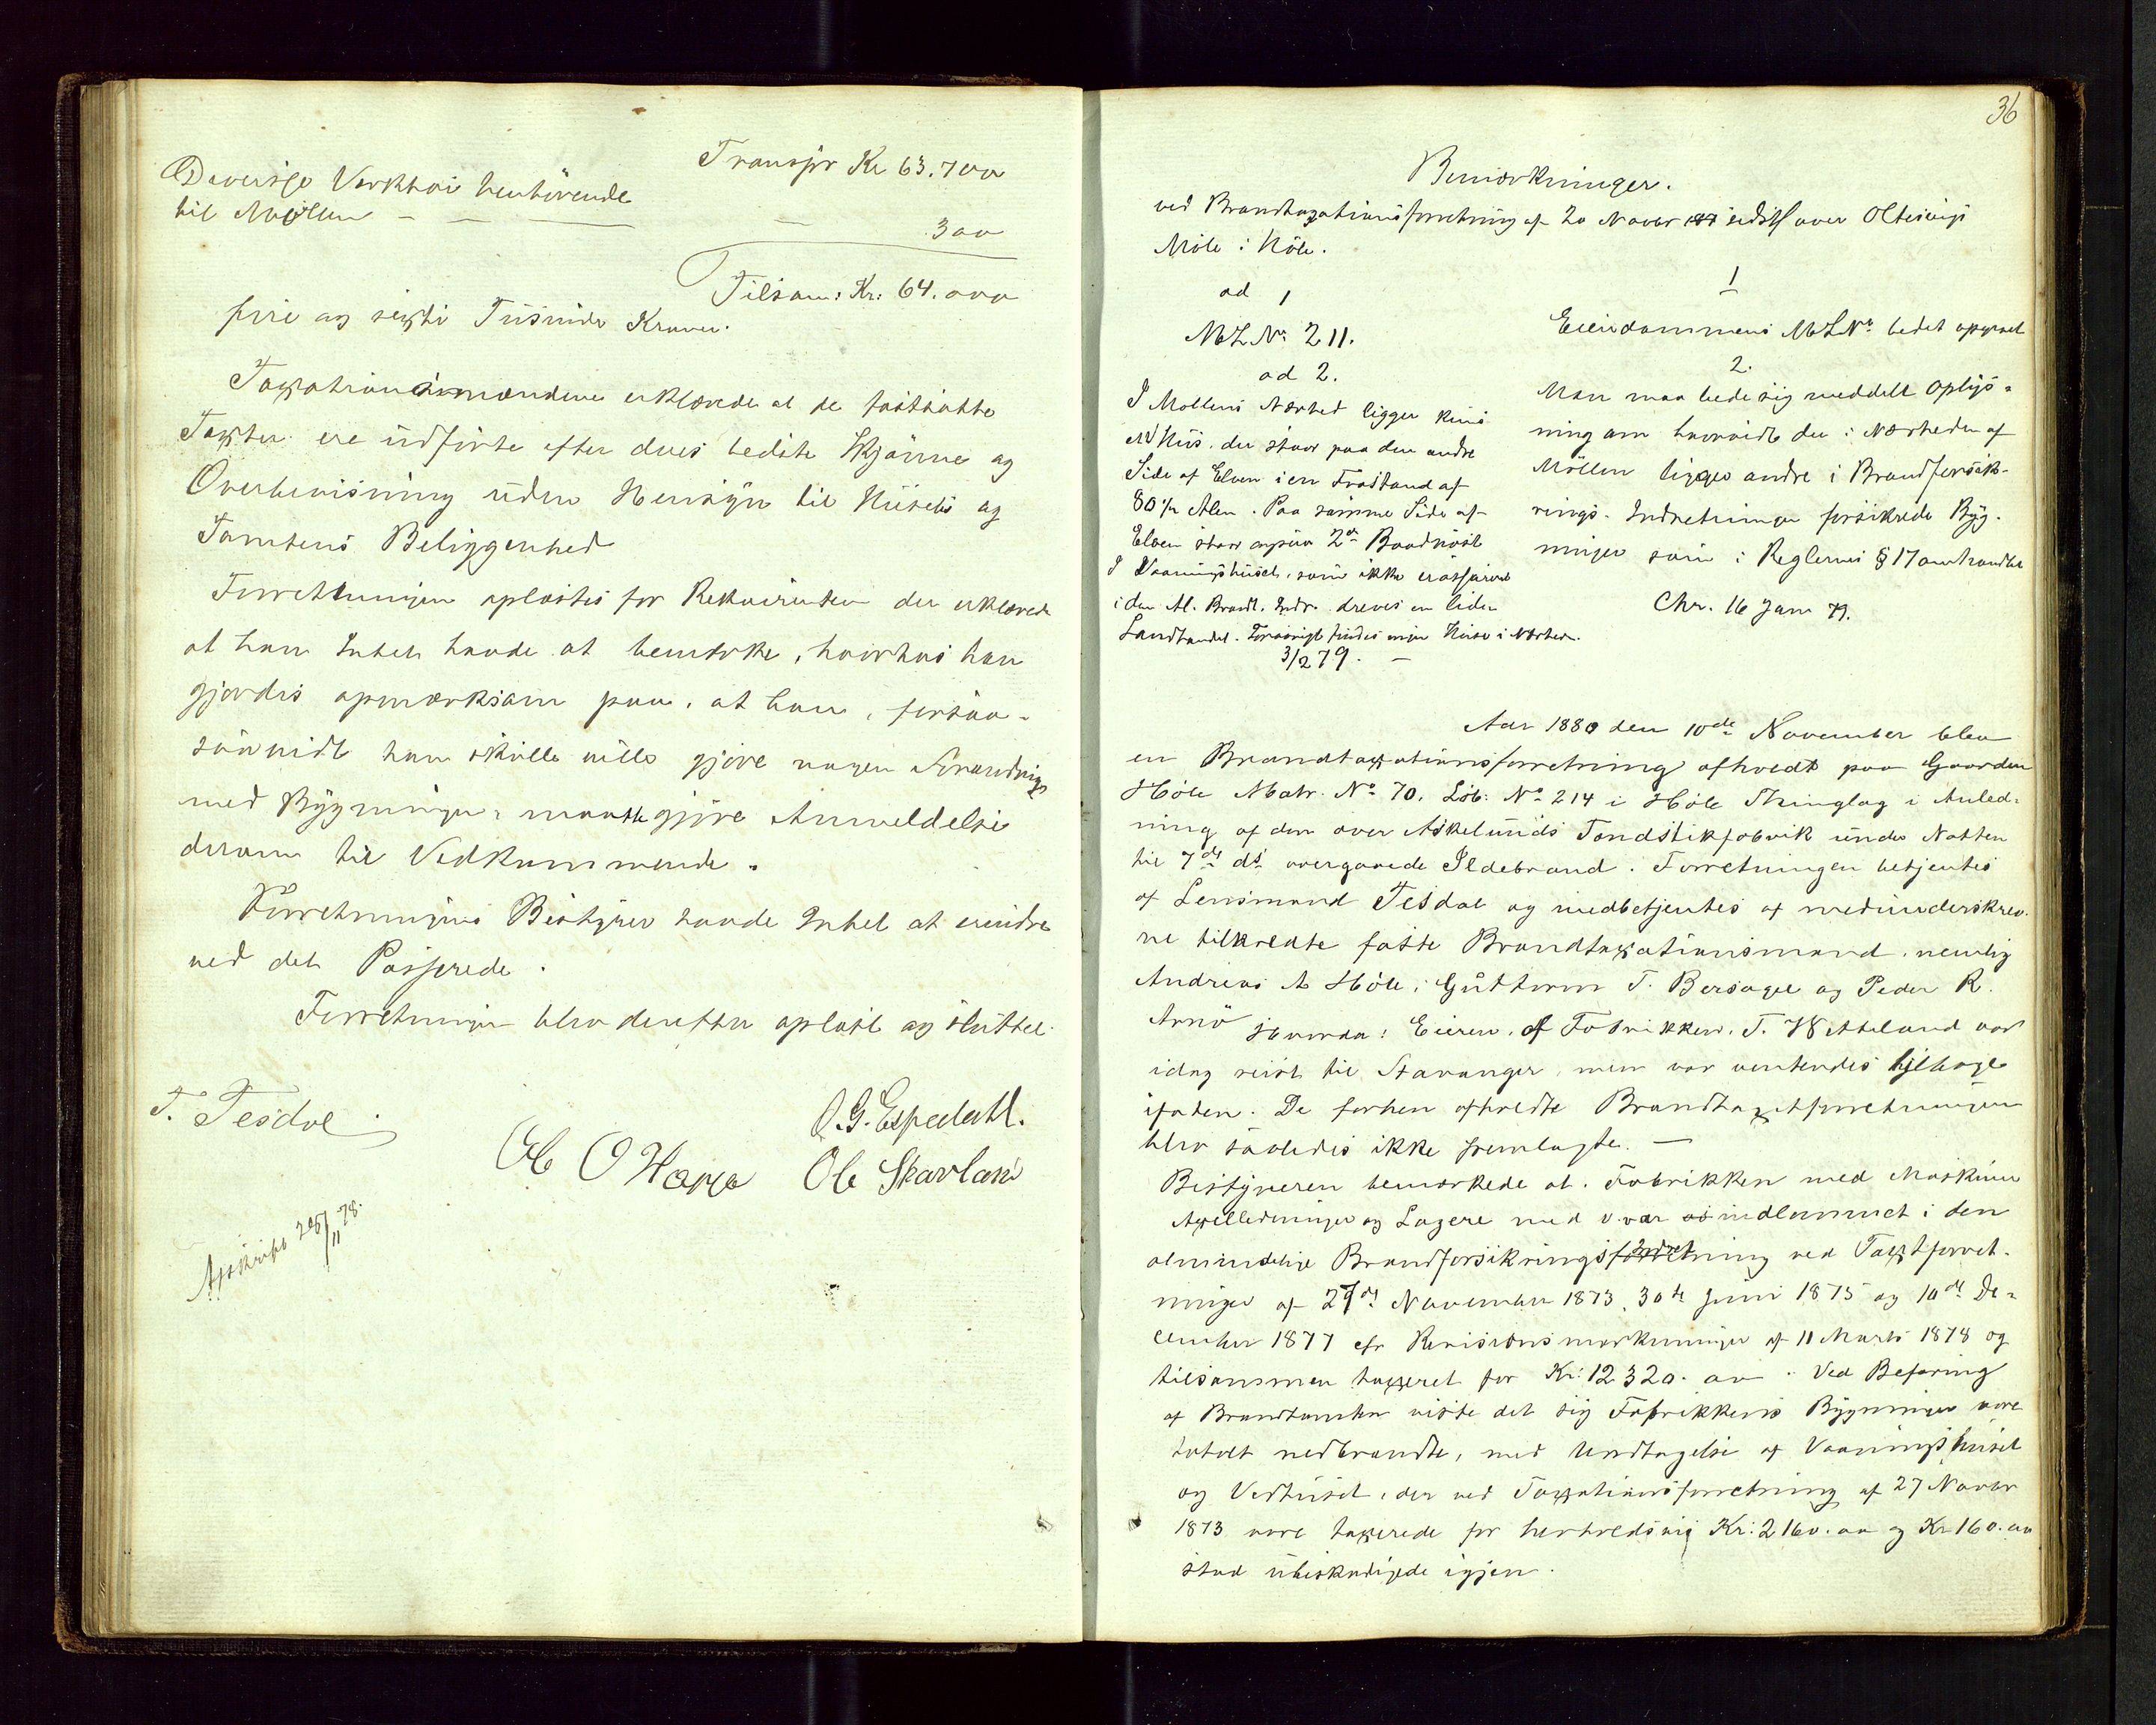 Transpr Kr 63.700
Diverse Verktøi henhörende
til Möllen — — — 300
Tilsam: Kr: 64.000
fire og sexti Tusinde Kroner.
Taxationsmændene erklærede at de fastsatte
Taxter ere udförte efter deres bedste Skjönne og
Overbevisning uden Hensyn til Husets og
Tomtens Beliggenhed
Forretningen oplæstes for Rekvirenten der erklærede
at han Intet havde at bemærke, hvorhos han
gjordes opmærksom paa, at han, forsaa-
saavidt han skulle ville gjöre nogen Forandring
med Bygningen, maatte gjöre Anmeldelse
derom til Vedkommende.
Forretningens Bestyrer havde Intet at erindre
ved det Passerede.
Forretningen blev derefter oplæst og sluttet.
T. Tesdal
O.G. Espedahl.
Ole O Hære Ole Skarland
Afskrift 205/11 78.
36
Bemærkninger.
ved Brandtaxationsforretning af 20 Novbr sidstl over Oltesvigs
Möle i Höle.
ad 1
ML No 211.
ad 2.
I Mollens Nærhed ligger kuns
et Huus, der staar paa den andre
Side af Elven i en Frastand af
80 ½ Alen. Paa samme Side af
Elven staar ogsaa 2de Baadnöst
I Vaaningshuset, som ikke er assureret
i den Al. Brandf. Indr. dreves en liden
Landhandel. Forövrigt findes ingen Huse i Nærheden.
3/2 79. —
1
Eiendommens MLNr bedes opgivet
2.
Man maa bede sig meddelt Oplys-
ning om hvorvidt der i Nærheden af
Möllen ligger andre i Brandforsik-
rings-Indretningen forsikrede Byg-
ninger som i Reglernes § 17 omhandlet
Chr. 16 Jan 79.
Aar 1880 den 10de November blev
en Brandtaxationsforretning afholdt paa Gaarden
Höle Matr. No 70. Löb: No 214 i Höle Thinglag i Anled-
ning af den over Askelunds Tændstikfabrik under Natten
til 7de ds overgaaede Ildebrand. Forretningen betjentes
af Lensmand Tesdal og medbetjentes af medunderskrev-
ne tilkaldte faste Brandtaxationsmænd, nemlig
Andreas A Höle, Guttorm T. Bersagel og Peder R.
Arnö Hvorda: Eieren af Fabrikken, T. Wetteland var
idag reist til Stavanger, men var ventendes tilbage
iaften. De forhen afholdte Brandtaxtforretninger
blev saaledes ikke fremlagte. —
Bestyreren bemærkede at Fabrikken med Maskiner
Axelledninger og Lagere med v. var indlemmet i den
almindelige Brandforsikringsindretning ved Taxtforret-
ninger af 27de November 1873, 30te Juni 1875 og 10de De-
cember 1877 cfr Revisionsmærkninger af 11 Marts 1878 og
tilsammen taxeret for Kr: 12320.00. Ved Befaring
af Brandtomten viste det sig Fabrikkens Bygninger være
totalt nedbrændte, med Undtagelse af Vaaningshuset
og Vedhuset, der ved Taxationsforretning af 27 Novbr
1873 vare taxerede for henholdsvis Kr: 2160.00 og Kr 160.00
stod ubeskadigede igjen.